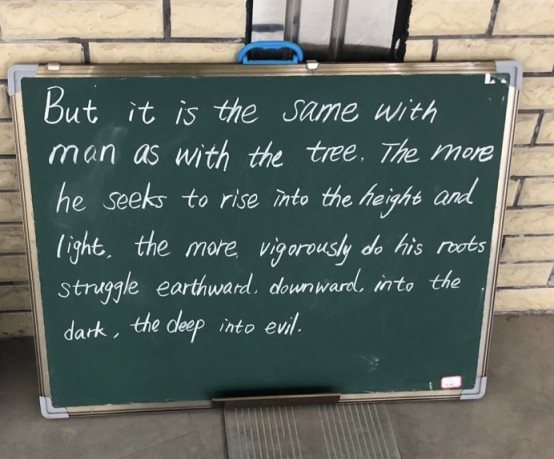 But it is the same with
man as with the tree. The more
he seeks to rise into the height and
light, the more vigorously do his roots
struggle earthward, downward, into the
dark, the deep into evil.